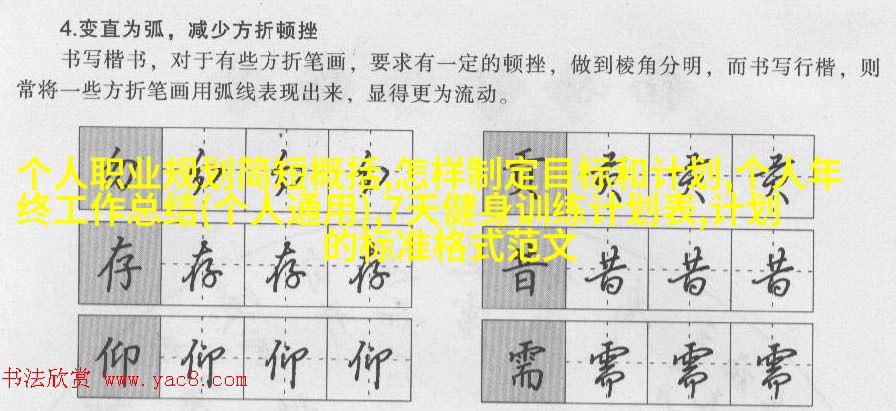 4.变直为弧，减少方折顿挫
书写楷书，对于有些方折笔画，要求有一定的顿挫，做到棱角分明，而书写行楷，则
常将一些方折笔画用弧线表现出来，显得更为流动。
个人职业规划简短概括,怎样制定目标和计划,个人年
终工作总结(个人通用),7天健身训练计划表,计划
的标准格式范文
存 存 存 存
昔 昔 昔 昔
仰 仰 仰 仰
需 需 需 需
书法欣赏 www.yac8.com